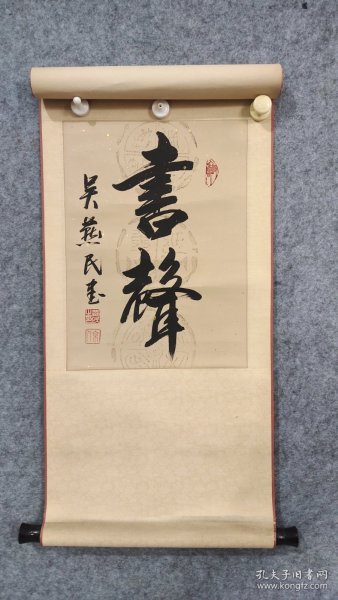 書聲
吴燕民书
孔夫子旧书网
www.kongfz.com